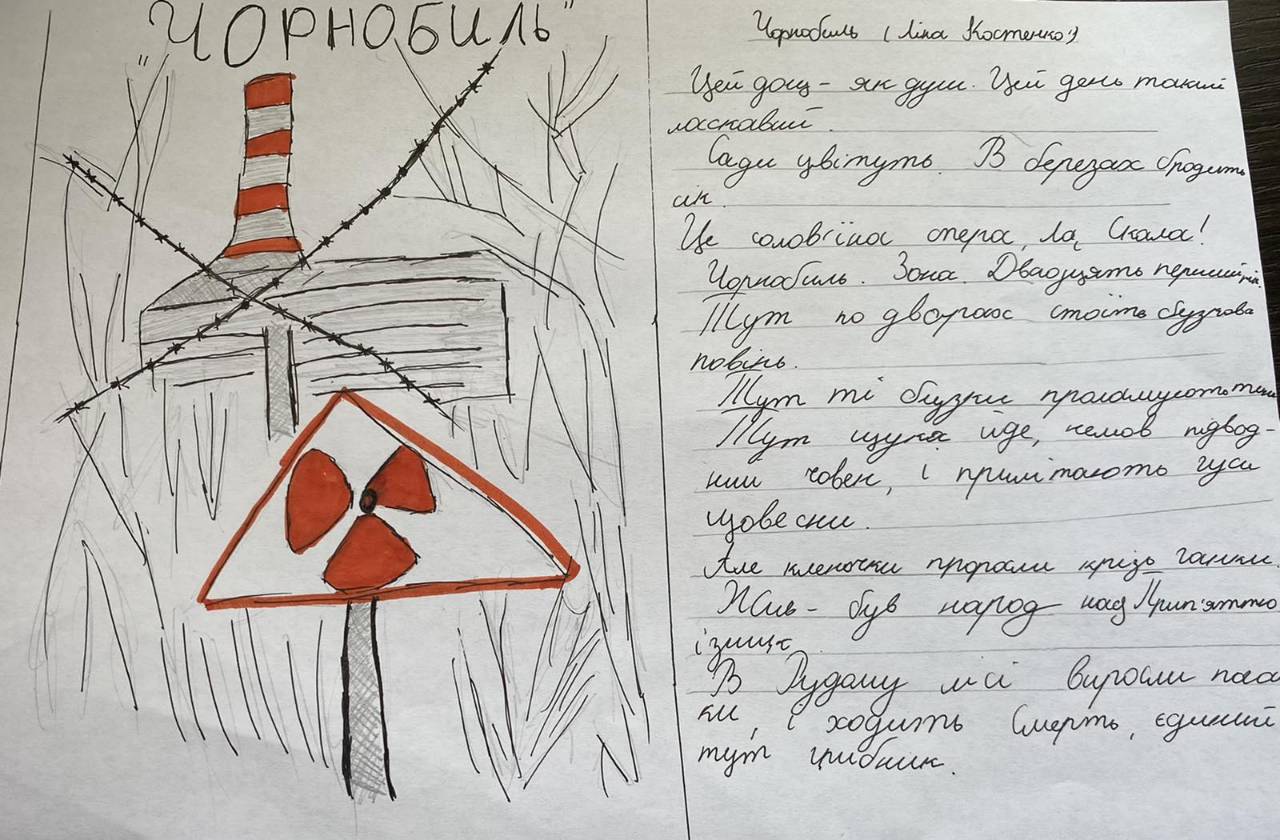 "ЧОРНОБИЛЬ"
Чорнобиль (Ліна Костенко)
Цей дощ - як душ. Цей день такий
ласкавий.
Сади цвітуть. В березах бродить
сік.
Це солов'їна опера, Ла Скала!
Чорнобиль. Зона. Двадцять перший рік.
Тут по дворах стоїть бузкова
повінь.
Тут ті бузки проламують тини
Тут щука йде, немов підвод-
ний човен, і прилітають гуси
щовесни.
Але кленочки проросли крізь ганки.
Жив - був народ над Прип'яттю
і зник
В Рудому лісі виросли пога
ки, і ходить Смерть, єдиний
тут грибник.